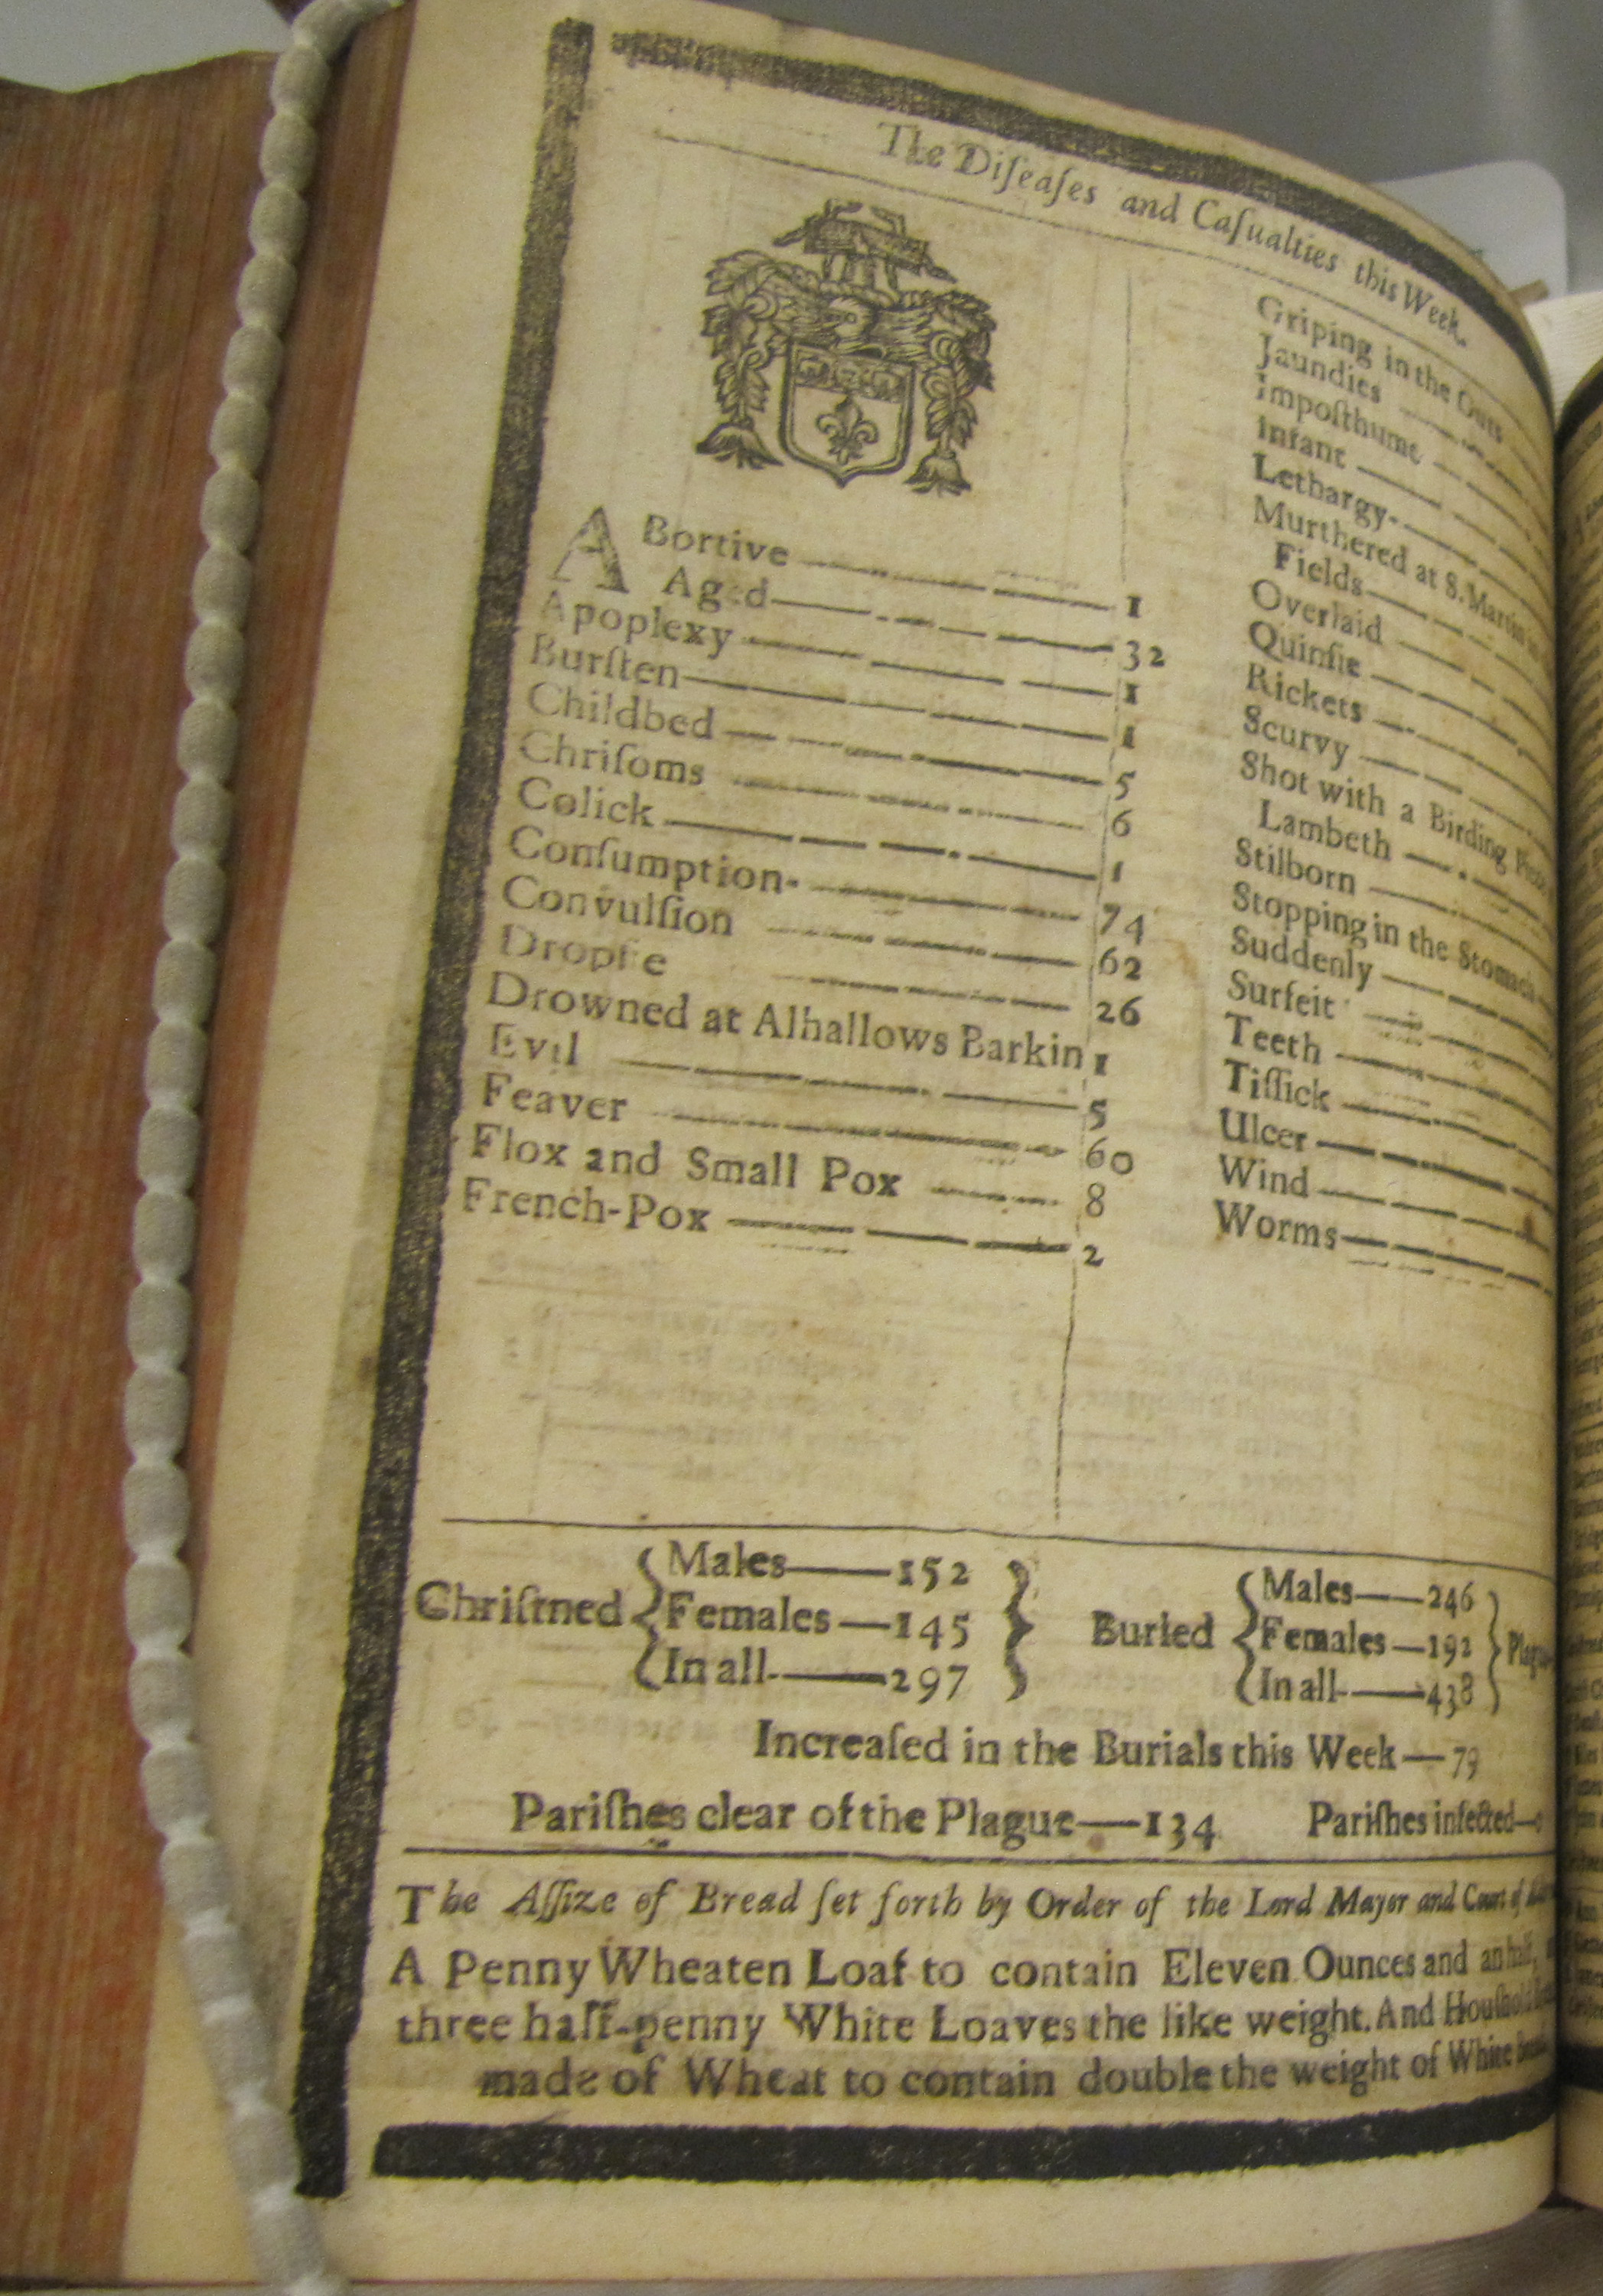 The Diſeaſes and Caſualties this Week.
ABortive 1
Aged 32
Apoplexy 1
Burſten 1
Childbed 5
Chriſoms 6
Colick 1
Conſumption 74
Convulſion 62
Dropſie 26
Drowned at Alhallows Barkin 1
Evil 5
Feaver 60
Flox and Small Pox 8
French-Pox 2
Griping in the Guts
Jaundies
Impoſthume
Infant
Lethargy
Murthered at S. Martin
Fields
Overlaid
Quinſie
Rickets
Scurvy
Shot with a Birding
Lambeth
Stilborn
Stopping in the Stomach
Suddenly
Surfeit
Teeth
Tiſſick
Ulcer
Wind
Worms
Chriſtned { Males—152
Females—145
In all—297 }
Buried { Males—246
Females—192
In all—438 } Plague
Increaſed in the Burials this Week—79
Pariſhes clear of the Plague—134 Pariſhes infected—0
The Aſſize of Bread ſet forth by Order of the Lord Mayor and Court of
A Penny Wheaten Loaf to contain Eleven Ounces and an half,
three half-penny White Loaves the like weight. And Houſhold
made of Wheat to contain double the weight of White